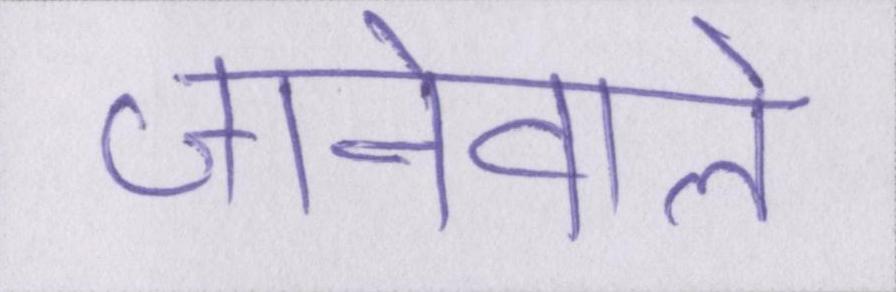 जानेवाले